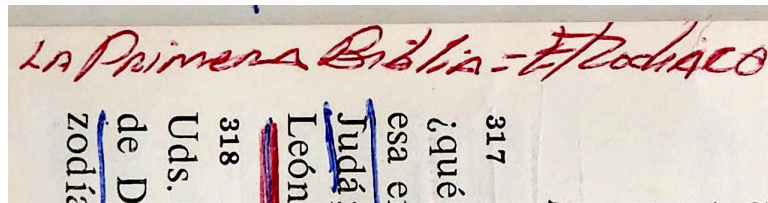 La Primera Biblia = El Zodiaco
317
¿qué
esa e
Judá
León
318
Uds.
de D
zodía